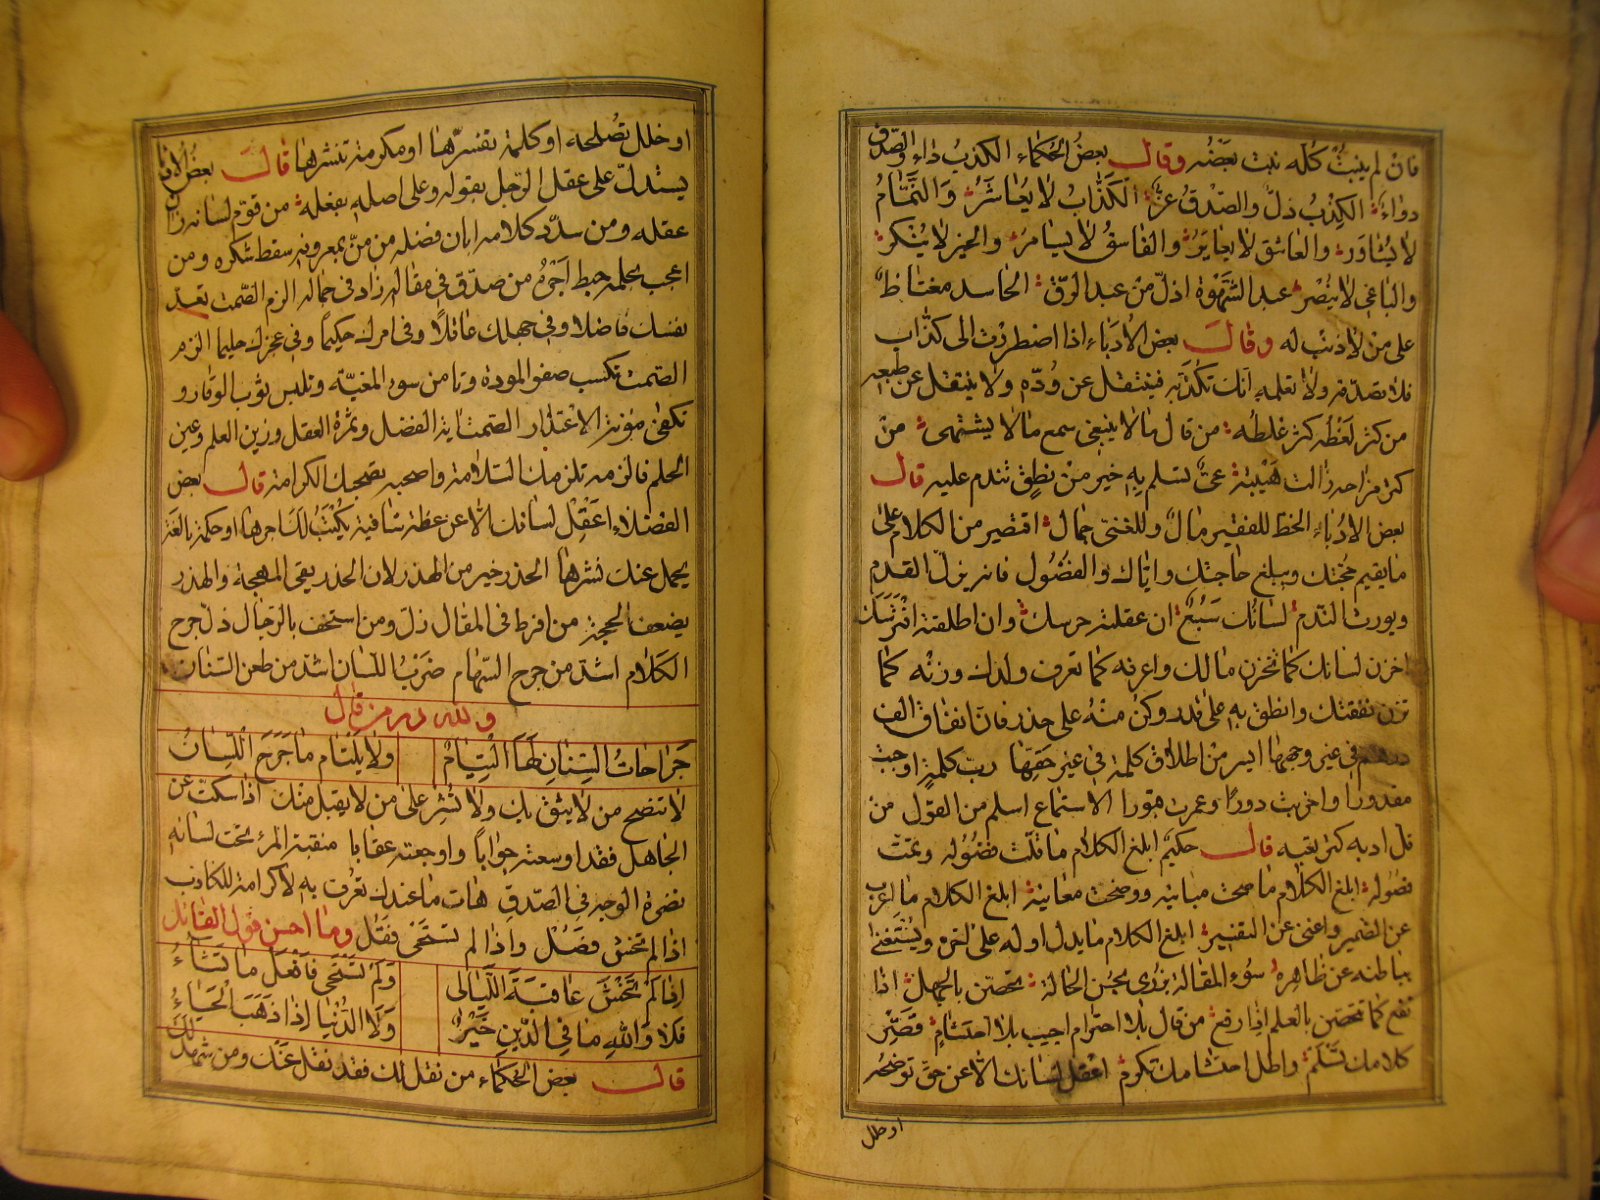 فان لم ينبت كله نبت بعضه وقال بعض الحكماء الكذب داء والصدق
دواء الكذب ذل والصدق عز الكذاب لا يعاشر والنمام
لا يشاور والعاشق لا يعاير والفاسق لا يسامر والخير لا ينكر
والباغي لا ينصر عبد الشهوة اذل من عبد الرق الحاسد مغتاظ
على من لا ذنب له وقال بعض الأدباء اذا اضطررت الى كذاب
فلا تصدقه ولا تعلمه انك تكذبه فينتقل عن وده ولا ينتقل عن طبعه
من كثر لغطه كثر غلطه من قال ما لا ينبغي سمع ما لا يشتهى من
كثر مزاحه زالت هيبته عي تسلم به خير من نطق تندم عليه قال
بعض الادباء الخط للفقير مال وللغني جمال اقتصر من الكلام على
ما يقيم حجتك ويبلغ حاجتك واياك والفضول فانه يزل القدم
ويورث الندم لسانك سبع ان عقلته حرسك وان اطلقته افترسك
اخزن لسانك كما تخزن مالك واعرفه كما تعرف ولدك وزنه كما
تزن نفقتك وانطق به على قدر وكن منه على حذر فان انفاق الف
درهم في غير وجهها ايسر من اطلاق كلمة في غير حقها رب كلمة اوجبت
مقدورا واخربت دورا وعمرت قبورا الاستماع اسلم من القول من
قل ادبه كثر تعبه قال حكيم ابلغ الكلام ما قلت فضوله وتمت
فصوله ابلغ الكلام ما صحت مبانيه ووضحت معانيه ابلغ الكلام ما اعرب
عن الضمير واغنى عن التفسير ابلغ الكلام ما يدل اوله على اخره ويستغنى
بباطنه عن ظاهره سوء المقالة يزرى بحسن الحالة تحصن بالجهل اذا
نفع كما تتحصن بالعلم اذا رفع من قال بلا احترام اجيب بلا احتشام قصر
كلامك تسلم واطل احتشامك تكرم اعقل لسانك الا عن حق توضحه
او خلل
او خلل تصلحه او كلمة تفسرها او مكرمة تنشرها قالت بعض الادبا
يستدل على عقل الرجل بقوله وعلى اصله بفعله من قوم لسانه زان
عقله ومن سدد كلامه ابان فضله من من بمعروفه سقط شكره ومن
اعجب بحلمه حبط اجره من صدق في مقاله زاد في جماله الزم الصمت تعد
نفسك فاضلا وفي جهلك عاقلا وفي امرك حكيما وفي عجزك حليما الزم
الصمت تكسب صفو المودة وتامن سوء المغبة وتلبس ثوب الوقار و
تكفى مؤنة الاعتذار الصمت اية الفضل وثمرة العقل وزين العلم وعين
الحلم فالزمه تلزمك السلامة واصحبه تصحبك الكرامة قال بعض
الفضلاء اعقل لسانك الا عن عظة شافية يكتب لك اجرها او حكمة بالغة
يحمل عنك نشرها الحذر خير من الهذر لان الحذر يقي المهجة والهذر
يضعف الحجة من افرط في المقال زل ومن استخف بالرجال ذل جرح
الكلام اشد من جرح السهام ضرب اللسان اشد من طعن السنان
ولله در من قال
جراحات السنان لها التيام ولا يلتام ما جرح اللسان
لا تنصح من لا يثق بك ولا تشر على من لا يقبل منك اذا سكت عن
الجاهل فقد اوسعته جوابا واوجعته عقابا منقبة المرء تحت لسانه
نضرة الوجه في الصدق هات ما عندك تعرف به لا كرامة للكاذب
اذا لم تخش فضل واذا لم تستحى فقل وما احسن قول القائل
اذا لم تخش عاقبة الليالى ولم تستحى فافعل ما تشاء
فلا والله ما في الدين خير ولا الدنيا اذا ذهب الحياء
قالت بعض الحكماء من نقل لك فقد نقل عنك ومن شهد لك